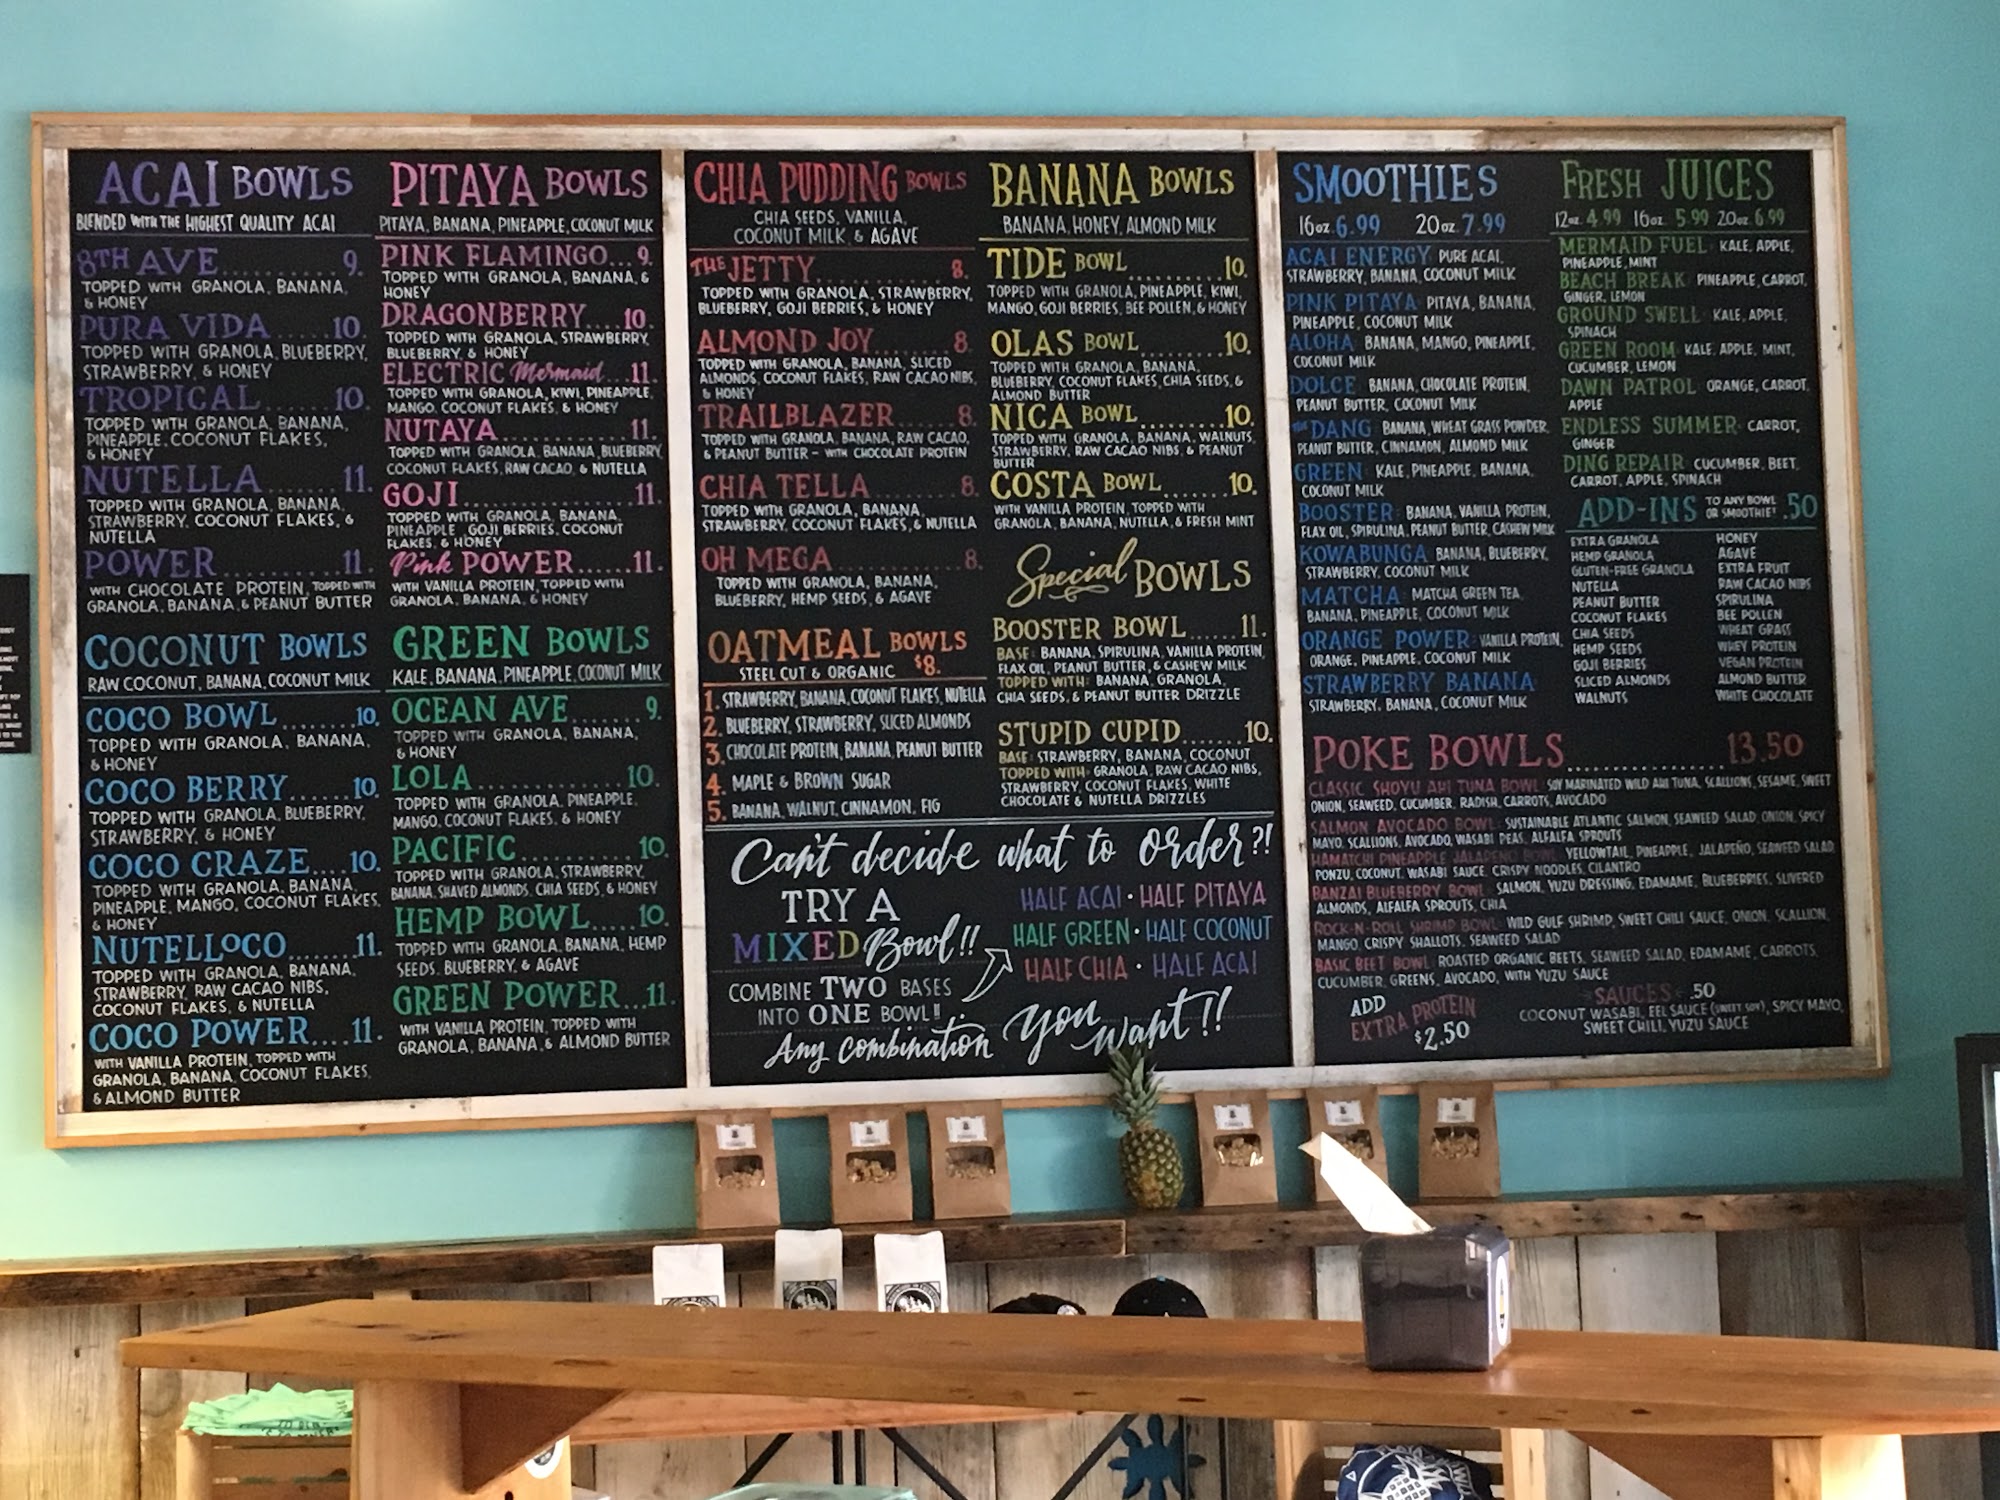 ACAI BOWLS
BLENDED WITH THE HIGHEST QUALITY ACAI
8TH AVE........ 9.
TOPPED WITH GRANOLA, BANANA,
& HONEY
PURA VIDA......10.
TOPPED WITH GRANOLA, BLUEBERRY,
STRAWBERRY, & HONEY
TROPICAL.......10.
TOPPED WITH GRANOLA, BANANA,
PINEAPPLE, COCONUT FLAKES,
& HONEY
NUTELLA........11.
TOPPED WITH GRANOLA, BANANA,
STRAWBERRY, COCONUT FLAKES, &
NUTELLA
POWER..........11.
WITH CHOCOLATE PROTEIN, TOPPED WITH
GRANOLA, BANANA, & PEANUT BUTTER
COCONUT BOWLS
RAW COCONUT, BANANA, COCONUT MILK
COCO BOWL.......10.
TOPPED WITH GRANOLA, BANANA,
& HONEY
COCO BERRY.....10.
TOPPED WITH GRANOLA, BLUEBERRY,
STRAWBERRY, & HONEY
COCO CRAZE....10.
TOPPED WITH GRANOLA, BANANA,
PINEAPPLE, MANGO, COCONUT FLAKES,
& HONEY
NUTELLOCO.......11.
TOPPED WITH GRANOLA, BANANA,
STRAWBERRY, RAW CACAO NIBS,
COCONUT FLAKES, & NUTELLA
COCO POWER....11.
WITH VANILLA PROTEIN, TOPPED WITH
GRANOLA, BANANA, COCONUT FLAKES,
& ALMOND BUTTER
PITAYA BOWLS
PITAYA, BANANA, PINEAPPLE, COCONUT MILK
PINK FLAMINGO...9.
TOPPED WITH GRANOLA, BANANA, &
HONEY
DRAGONBERRY....10.
TOPPED WITH GRANOLA, STRAWBERRY,
BLUEBERRY, & HONEY
ELECTRIC Mermaid...11.
TOPPED WITH GRANOLA, KIWI, PINEAPPLE,
MANGO, COCONUT FLAKES, & HONEY
NUTAYA............11.
TOPPED WITH GRANOLA, BANANA, BLUEBERRY,
COCONUT FLAKES, RAW CACAO, & NUTELLA
GOJI...............11.
TOPPED WITH GRANOLA, BANANA,
PINEAPPLE, GOJI BERRIES, COCONUT
FLAKES, & HONEY
Pink POWER......11.
WITH VANILLA PROTEIN, TOPPED WITH
GRANOLA, BANANA, & HONEY
GREEN BOWLS
KALE, BANANA, PINEAPPLE, COCONUT MILK
OCEAN AVE....... 9.
TOPPED WITH GRANOLA, BANANA,
& HONEY
LOLA...............10.
TOPPED WITH GRANOLA, PINEAPPLE,
MANGO, COCONUT FLAKES, & HONEY
PACIFIC...........10.
TOPPED WITH GRANOLA, STRAWBERRY,
BANANA, SHAVED ALMONDS, CHIA SEEDS, & HONEY
HEMP BOWL.......10.
TOPPED WITH GRANOLA, BANANA, HEMP
SEEDS, BLUEBERRY, & AGAVE
GREEN POWER...11.
WITH VANILLA PROTEIN, TOPPED WITH
GRANOLA, BANANA, & ALMOND BUTTER
CHIA PUDDING BOWLS
CHIA SEEDS, VANILLA,
COCONUT MILK, & AGAVE
THE JETTY............8.
TOPPED WITH GRANOLA, STRAWBERRY,
BLUEBERRY, GOJI BERRIES, & HONEY
ALMOND JOY........8.
TOPPED WITH GRANOLA, BANANA, SLICED
ALMONDS, COCONUT FLAKES, RAW CACAO NIBS,
& HONEY
TRAILBLAZER.......8.
TOPPED WITH GRANOLA, BANANA, RAW CACAO,
& PEANUT BUTTER - WITH CHOCOLATE PROTEIN
CHIA TELLA.........8.
TOPPED WITH GRANOLA, BANANA,
STRAWBERRY, COCONUT FLAKES, & NUTELLA
OH MEGA............8.
TOPPED WITH GRANOLA, BANANA,
BLUEBERRY, HEMP SEEDS, & AGAVE
OATMEAL BOWLS
STEEL CUT & ORGANIC $8.
1. STRAWBERRY, BANANA, COCONUT FLAKES, NUTELLA
2. BLUEBERRY, STRAWBERRY, SLICED ALMONDS
3. CHOCOLATE PROTEIN, BANANA, PEANUT BUTTER
4. MAPLE & BROWN SUGAR
5. BANANA, WALNUT, CINNAMON, FIG
BANANA BOWLS
BANANA, HONEY, ALMOND MILK
TIDE BOWL...........10.
TOPPED WITH GRANOLA, PINEAPPLE, KIWI,
MANGO, GOJI BERRIES, BEE POLLEN, & HONEY
OLAS BOWL..........10.
TOPPED WITH GRANOLA, BANANA,
BLUEBERRY, COCONUT FLAKES, CHIA SEEDS, &
ALMOND BUTTER
NICA BOWL..........10.
TOPPED WITH GRANOLA, BANANA, WALNUTS,
STRAWBERRY, RAW CACAO NIBS, & PEANUT
BUTTER
COSTA BOWL.......10.
WITH VANILLA PROTEIN, TOPPED WITH
GRANOLA, BANANA, NUTELLA, & FRESH MINT
Special BOWLS
BOOSTER BOWL......11.
BASE: BANANA, SPIRULINA, VANILLA PROTEIN,
FLAX OIL, PEANUT BUTTER, & CASHEW MILK
TOPPED WITH: BANANA, GRANOLA,
CHIA SEEDS, & PEANUT BUTTER DRIZZLE
STUPID CUPID.......10.
BASE: STRAWBERRY, BANANA, COCONUT
TOPPED WITH: GRANOLA, RAW CACAO NIBS,
STRAWBERRY, COCONUT FLAKES, WHITE
CHOCOLATE & NUTELLA DRIZZLES
Can't decide what to order?!
TRY A
MIXED Bowl!!
COMBINE TWO BASES
INTO ONE BOWL!!
HALF ACAI • HALF PITAYA
HALF GREEN • HALF COCONUT
HALF CHIA • HALF ACAI
Any combination you want!!
SMOOTHIES
16oz 6.99 20oz 7.99
ACAI ENERGY: PURE ACAI,
STRAWBERRY, BANANA, COCONUT MILK
PINK PITAYA: PITAYA, BANANA,
PINEAPPLE, COCONUT MILK
ALOHA: BANANA, MANGO, PINEAPPLE,
COCONUT MILK
DOLCE: BANANA, CHOCOLATE PROTEIN,
PEANUT BUTTER, COCONUT MILK
THE DANG: BANANA, WHEAT GRASS POWDER,
PEANUT BUTTER, CINNAMON, ALMOND MILK
GREEN: KALE, PINEAPPLE, BANANA,
COCONUT MILK
BOOSTER: BANANA, VANILLA PROTEIN,
FLAX OIL, SPIRULINA, PEANUT BUTTER, CASHEW MILK
KOWABUNGA: BANANA, BLUEBERRY,
STRAWBERRY, COCONUT MILK
MATCHA: MATCHA GREEN TEA,
BANANA, PINEAPPLE, COCONUT MILK
ORANGE POWER: VANILLA PROTEIN,
ORANGE, PINEAPPLE, COCONUT MILK
STRAWBERRY BANANA:
STRAWBERRY, BANANA, COCONUT MILK
FRESH JUICES
12oz. 4.99 16oz. 5.99 20oz. 6.99
MERMAID FUEL: KALE, APPLE,
PINEAPPLE, MINT
BEACH BREAK: PINEAPPLE, CARROT,
GINGER, LEMON
GROUND SWELL: KALE, APPLE,
SPINACH
GREEN ROOM: KALE, APPLE, MINT,
CUCUMBER, LEMON
DAWN PATROL: ORANGE, CARROT,
APPLE
ENDLESS SUMMER: CARROT,
GINGER
DING REPAIR: CUCUMBER, BEET,
CARROT, APPLE, SPINACH
ADD-INS TO ANY BOWL OR SMOOTHIE! .50
EXTRA GRANOLA
HEMP GRANOLA
GLUTEN-FREE GRANOLA
NUTELLA
PEANUT BUTTER
COCONUT FLAKES
CHIA SEEDS
HEMP SEEDS
GOJI BERRIES
SLICED ALMONDS
WALNUTS
HONEY
AGAVE
EXTRA FRUIT
RAW CACAO NIBS
SPIRULINA
BEE POLLEN
WHEAT GRASS
WHEY PROTEIN
VEGAN PROTEIN
ALMOND BUTTER
WHITE CHOCOLATE
POKE BOWLS..............13.50
CLASSIC SHOYU AHI TUNA BOWL: SOY MARINATED WILD AHI TUNA, SCALLIONS, SESAME, SWEET
ONION, SEAWEED, CUCUMBER, RADISH, CARROTS, AVOCADO
SALMON AVOCADO BOWL: SUSTAINABLE ATLANTIC SALMON, SEAWEED SALAD, ONION, SPICY
MAYO, SCALLIONS, AVOCADO, WASABI PEAS, ALFALFA SPROUTS
HAMATCHI PINEAPPLE JALAPEÑO BOWL: YELLOWTAIL, PINEAPPLE, JALAPEÑO, SEAWEED SALAD,
PONZU, COCONUT, WASABI SAUCE, CRISPY NOODLES, CILANTRO
BANZAI BLUEBERRY BOWL: SALMON, YUZU DRESSING, EDAMAME, BLUEBERRIES, SLIVERED
ALMONDS, ALFALFA SPROUTS, CHIA
ROCK-N-ROLL SHRIMP BOWL: WILD GULF SHRIMP, SWEET CHILI SAUCE, ONION, SCALLION,
MANGO, CRISPY SHALLOTS, SEAWEED SALAD
BASIC BEET BOWL: ROASTED ORGANIC BEETS, SEAWEED SALAD, EDAMAME, CARROTS,
CUCUMBER, GREENS, AVOCADO, WITH YUZU SAUCE
ADD
EXTRA PROTEIN
$2.50
SAUCES .50
COCONUT WASABI, EEL SAUCE (SWEET SOY), SPICY MAYO,
SWEET CHILI, YUZU SAUCE